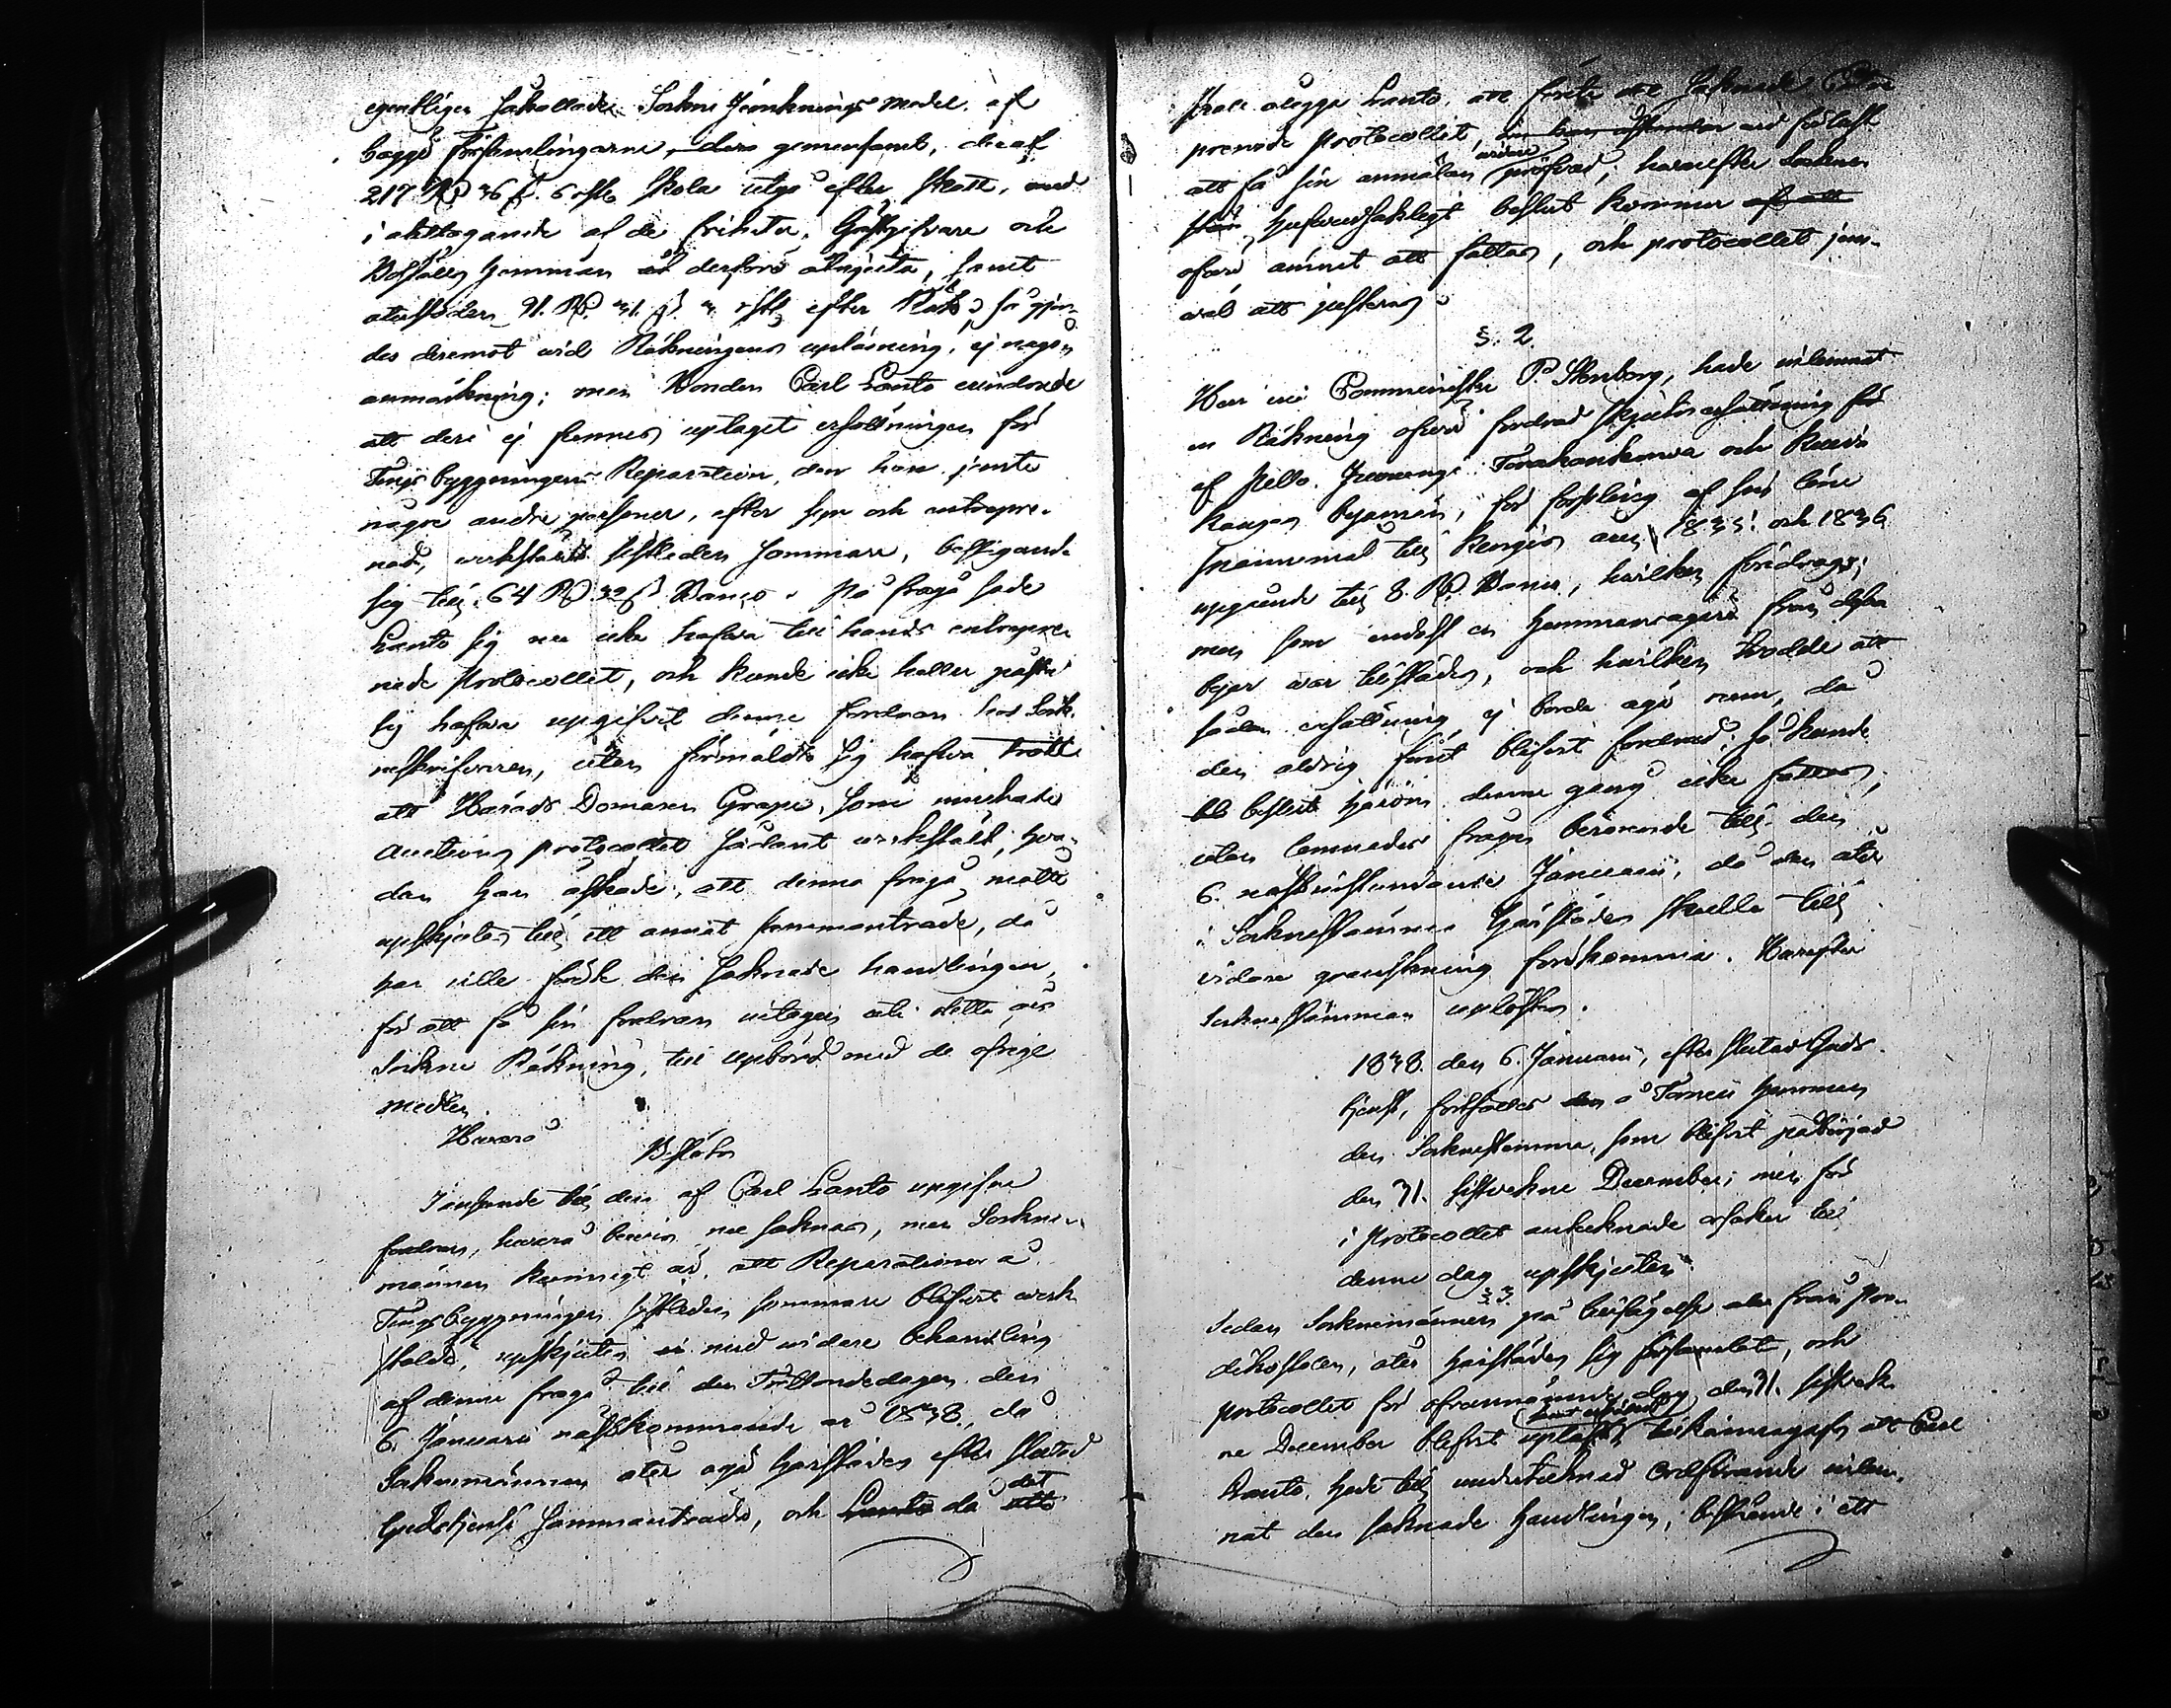 egentligen så kallade Sockne Inrknings medel af
bägge församlingarne, dera gemensamt, deraf
217 Rd 36 s. 6 rst skola utgå efter skatt, med
i akttagande af de friheter, Gästgifvare och
Bolhålls hemman derföre åtnjuta, samt
återstoden 91. Rd. 31. s. 3 rst efter Rök; så gjor-
des deremot vid Räkningens upläsning, ej någon
anmärkning; men Bonden Carl Lanto erindrade
att deri ej funnes uptaget ersättningen för
Tings byggningens Reparation, den han jemte
några andre personer, efter syn och entrepre-
nad, verkställt sistleden sommare, bestigande
sig till 64 Rd 32 s Banco. På fråga sade
Lanto sig nu icke hafva till hands entrepre-
nade Protocollet, och kunde icke heller påstå
sig hafva upgifvit denne fordran hos Sock-
neskrifvaren, utan förmälde sig hafva trott
att Härads Domaren Grape, som innehade
Auctions protocollet sådant verkställt; hva-
dan han äskade, att denna fråga måtte
upskjutas till ett annat sammanträde, då
han ville försk den saknade handlingen,
för att få sin fordran uptagen uti detta års
Sockne Räkning, till upbörd med de öfrige
medlen.
Härå
Beslöts
I anseende till den af Carl Lanto upgifne
fordran, hvarå bevis nu saknas, men Sockne-
männen kunnigt är, att Reparationer å
Tingsbyggningen sistleden sommare blifvit verk
stälde, upskjutes med vidare behandling
af denne fråga till den Trettondedagen den
6 Januarii nästkommande år 1838, då
Sockenmännen åter ägde härstädes efter slutad
Gudstjenst sammanträda, och Lanto då det att
skall ålägga Lanto, att förete det saknade Entre
prenade protocollet vid förlust
att få sin anmälan vidare pröfvad, hvarefter Socknen
hufvudsakligt beslut kommer af att
öfver ämnet att fattas, och protocollet jem-
väl att justeras.
§. 2.
Herr Comminister P. Stenborg, hade inlemnat
en Räkning öfver fordrad skjutsersättning för
af Pello, Juoxengi Turtola och
Kanges byamän, för forsling af sin löne
spannemål till Kengis åren 1835 och 1836
upgående till 8. Rd. Banco, hvilken föredrogs;
men som endast en hemmansägare från dessa
byar var tillstädes, och hvilken trodde att
sådan ersättning ej borde äga rum, då
den aldrig förut blifvit fordrad; så kunde
beslut häröfver denne gång icke fattas,
utan lemnades frågan beroende till den
6. nästinstundande Januarii, då den åter
i Sockneslämma härstädes skulle till
vidare granskning förekomma. Härefter
Sockneslämman uplöstes.
1838. den 6. Januarii, efter slutad Guds-
tjenst, fortsattes den å Torneå hemman
den Sockneslämma, som blifvit påbörjad
den 31. sistvekne December; men för
i Protocollet antecknade orsaker till
denne dag upskjuten.
§ 3.
Sedan Sockenmännen på tillsägelse från Pre-
dikostolen, åter härstädes sig församlat, och
protocollet för ofvannämnde dag den 31. sistvek-
ne December blifvit upläst, tillkännagafs att Carl
Lanto, hade till undertecknad Ordförande inlem-
nat den saknade handlingen, bestående i ett